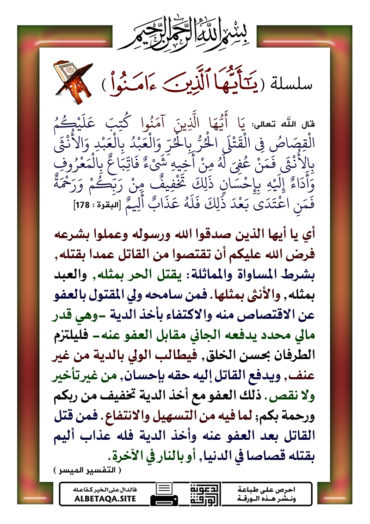 بِسْمِ اللَّهِ الرَّحْمَٰنِ الرَّحِيمِ
سلسلة ( يَـٰٓأَيُّهَا ٱلَّذِينَ ءَامَنُوا۟ )
قال الله تعالى: يَا أَيُّهَا الَّذِينَ آمَنُوا كُتِبَ عَلَيْكُمُ
الْقِصَاصُ فِي الْقَتْلَى الْحُرُّ بِالْحُرِّ وَالْعَبْدُ بِالْعَبْدِ وَالْأُنْثَى
بِالْأُنْثَى فَمَنْ عُفِيَ لَهُ مِنْ أَخِيهِ شَيْءٌ فَاتِّبَاعٌ بِالْمَعْرُوفِ
وَأَدَاءٌ إِلَيْهِ بِإِحْسَانٍ ذَلِكَ تَخْفِيفٌ مِنْ رَبِّكُمْ وَرَحْمَةٌ
فَمَنِ اعْتَدَى بَعْدَ ذَلِكَ فَلَهُ عَذَابٌ أَلِيمٌ [البقرة : 178]
أي يا أيها الذين صدقوا الله ورسوله وعملوا بشرعه
فرض الله عليكم أن تقتصوا من القاتل عمدا بقتله,
بشرط المساواة والمماثلة: يقتل الحر بمثله, والعبد
بمثله, والأنثى بمثلها. فمن سامحه ولي المقتول بالعفو
عن الاقتصاص منه والاكتفاء بأخذ الدية -وهي قدر
مالي محدد يدفعه الجاني مقابل العفو عنه- فليلتزم
الطرفان بحسن الخلق, فيطالب الولي بالدية من غير
عنف, ويدفع القاتل إليه حقه بإحسان, من غير تأخير
ولا نقص. ذلك العفو مع أخذ الدية تخفيف من ربكم
ورحمة بكم; لما فيه من التسهيل والانتفاع. فمن قتل
القاتل بعد العفو عنه وأخذ الدية فله عذاب أليم
بقتله قصاصا في الدنيا, أو بالنار في الآخرة.
( التفسير الميسر )
احرص على طباعة
ونشر هذه الورقة
الورقة الدعوية
فالدال على الخير كفاعله
ALBETAQA.SITE